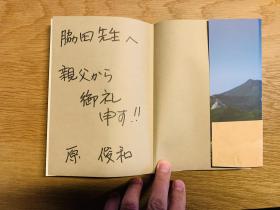 脇田先生へ
親父から
御礼
申す!!
原 俊和